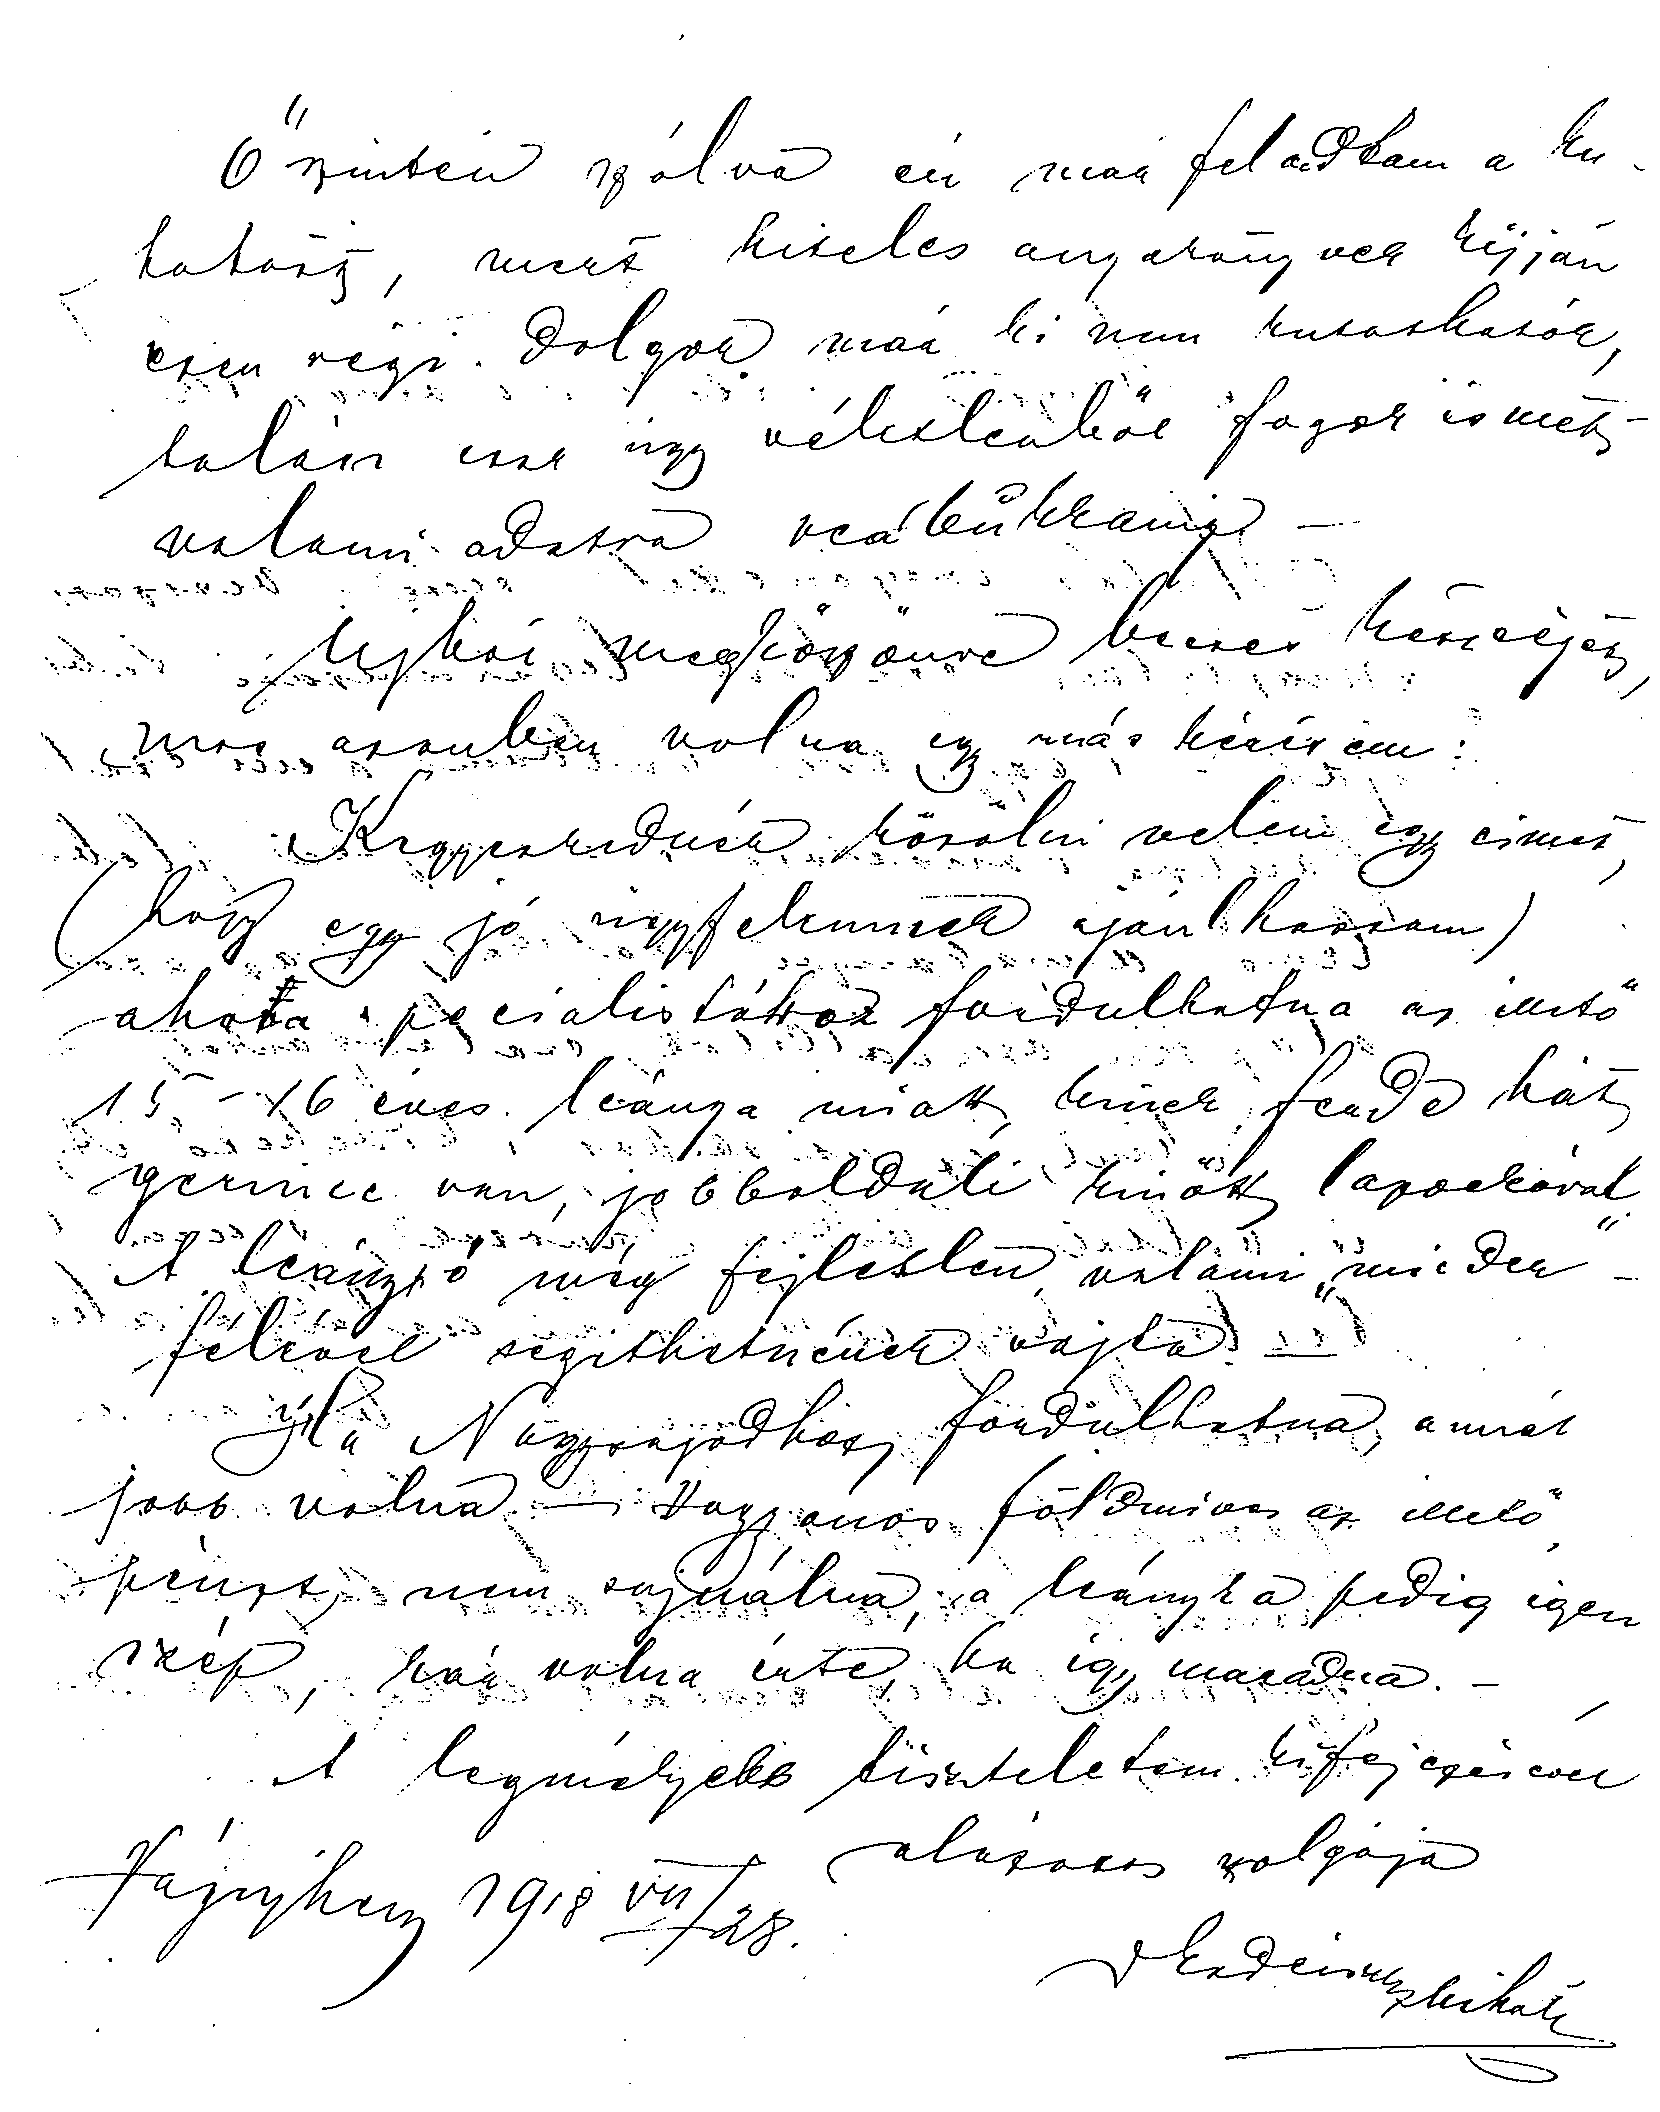 Őszintén szólva én már feladtam a ku-
tatást, mert hiteles anyakönyvek híján
ezen régi dolgok már ki nem kutathatók,
talán csak úgy véletlenből fogok ismét
valami adatra reábukkanni —
Ujból megköszönve becses készségét,
most azonban volna egy más kérésem:
Kegyeskednék közölni velem egy címet,
(hogy egy jó ügyfelemnek ajánlhassam)
ahova specialistához fordulhatna az illető
15–16 éves leánya miatt, kinek ferde hát
gerince van, jobboldali kinőtt lapockával.
A leányzó még fejletlen, valami „mieder"-
félével segithetnének rajta. —
Ha Nagyságodhoz fordulhatna, annál
jobb volna — Vagyonos földmives az illető
pénzt nem sajnálna, a leányka pedig igen
szép, kár volna érte, ha így maradna. —
A legmélyebb tiszteletem kifejezésével
alázatos szolgája
1918 VII/28.